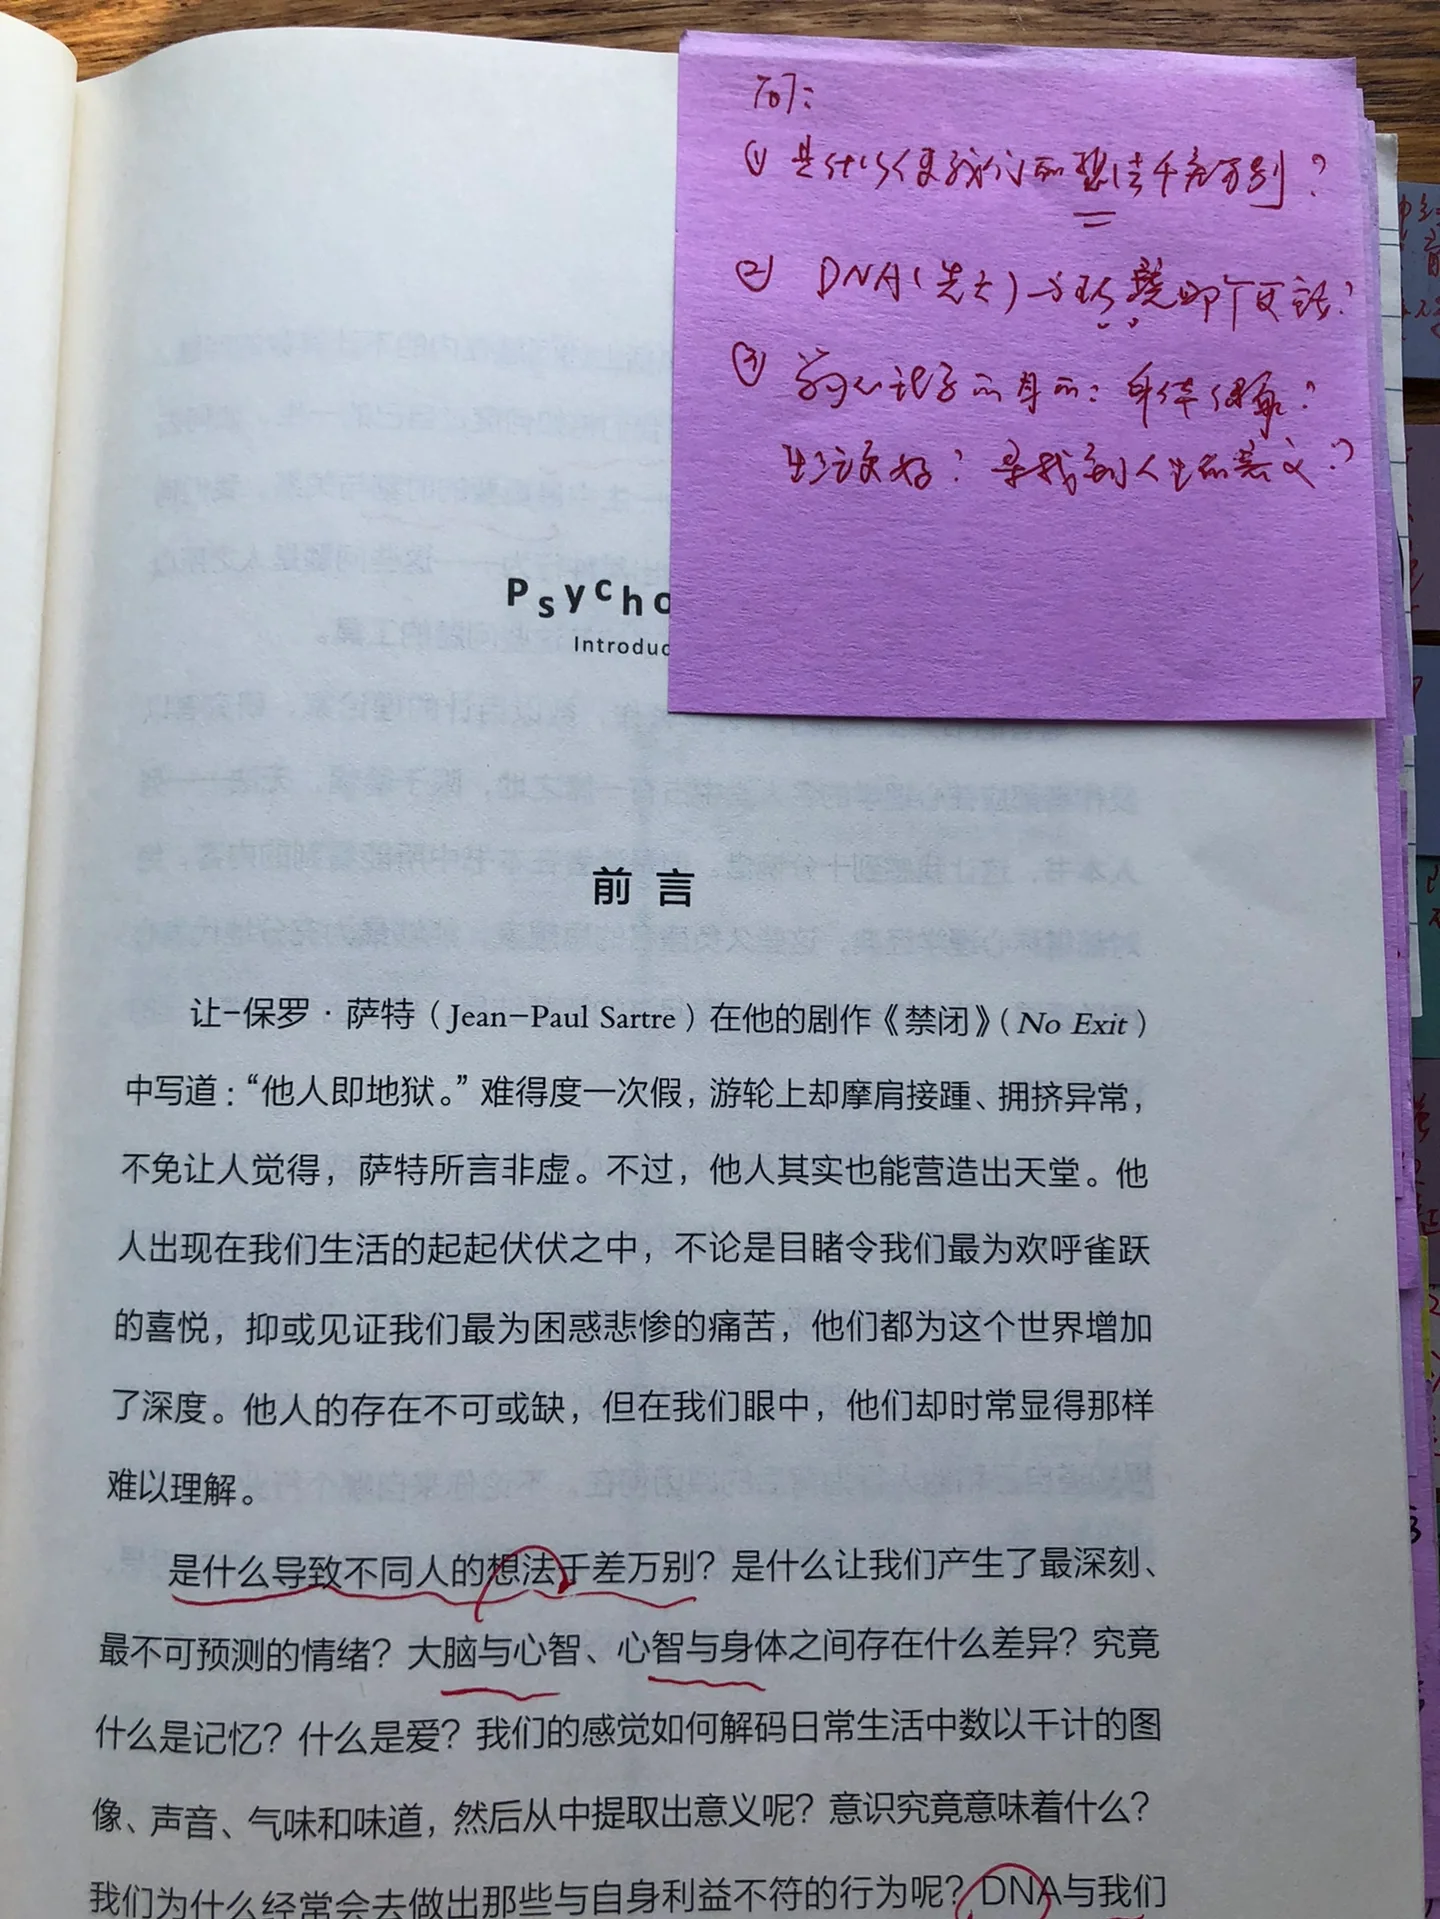 问：
① 是什么使我们的想法千差万别？
② DNA（先天）与环境哪个更
③ 学心理学的目的：身体健康？
生活更好？寻找到人生的意义？
Psycho
Introduc
前言
让-保罗·萨特（Jean-Paul Sartre）在他的剧作《禁闭》（No Exit）
中写道：“他人即地狱。”难得度一次假，游轮上却摩肩接踵、拥挤异常，
不免让人觉得，萨特所言非虚。不过，他人其实也能营造出天堂。他
人出现在我们生活的起起伏伏之中，不论是目睹令我们最为欢呼雀跃
的喜悦，抑或见证我们最为困惑悲惨的痛苦，他们都为这个世界增加
了深度。他人的存在不可或缺，但在我们眼中，他们却时常显得那样
难以理解。
是什么导致不同人的想法千差万别？是什么让我们产生了最深刻、
最不可预测的情绪？大脑与心智、心智与身体之间存在什么差异？究竟
什么是记忆？什么是爱？我们的感觉如何解码日常生活中数以千计的图
像、声音、气味和味道，然后从中提取出意义呢？意识究竟意味着什么？
我们为什么经常会去做出那些与自身利益不符的行为呢？DNA与我们